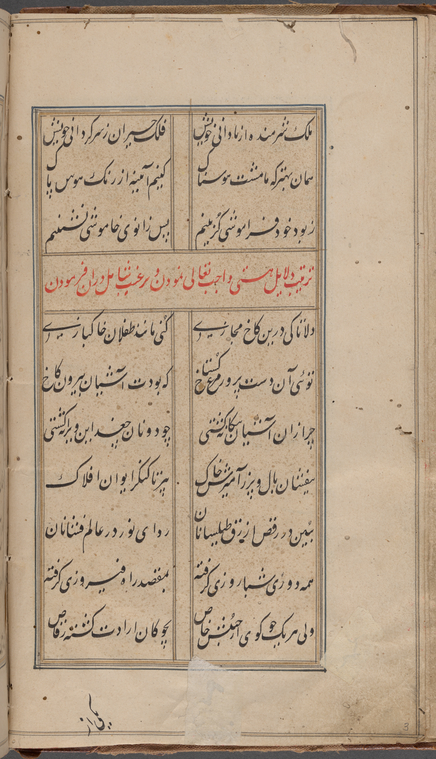 ملک شرمنده از نادانی خویش فلک حیران ز سرگردانی خویش
همان بهتر که ما مشت هوسناک کنیم آینه از زنگ هوس پاک
ز بود خود فراموشی گزینیم پس زانوی خاموشی نشینیم
ترتیب دلایل هستی واجب تعالی نمودن و ترغیب تامل در ان فرمودن
دلا تا کی درین کاخ مجازی کنی مانند طفلان خاکبازی
توئی آن دست پرور مرغ گستاخ که بودت آشیان بیرون کاخ
چرا زان آشیان بیگانه گشتی چو دونان جغد این ویرانه گشتی
بیفشان بال و پر ز آمیزش خاک بپر تا کنگر ایوان افلاک
ببین در رقص ازرق طیلسانان ردای نور در عالم فشانان
همه دور شباروزی گرفته بمقصد راه فیروزی گرفته
ولی هر یک چو گوی از جنبش خاص بچوگان ارادت گشته رقاص
یکی از